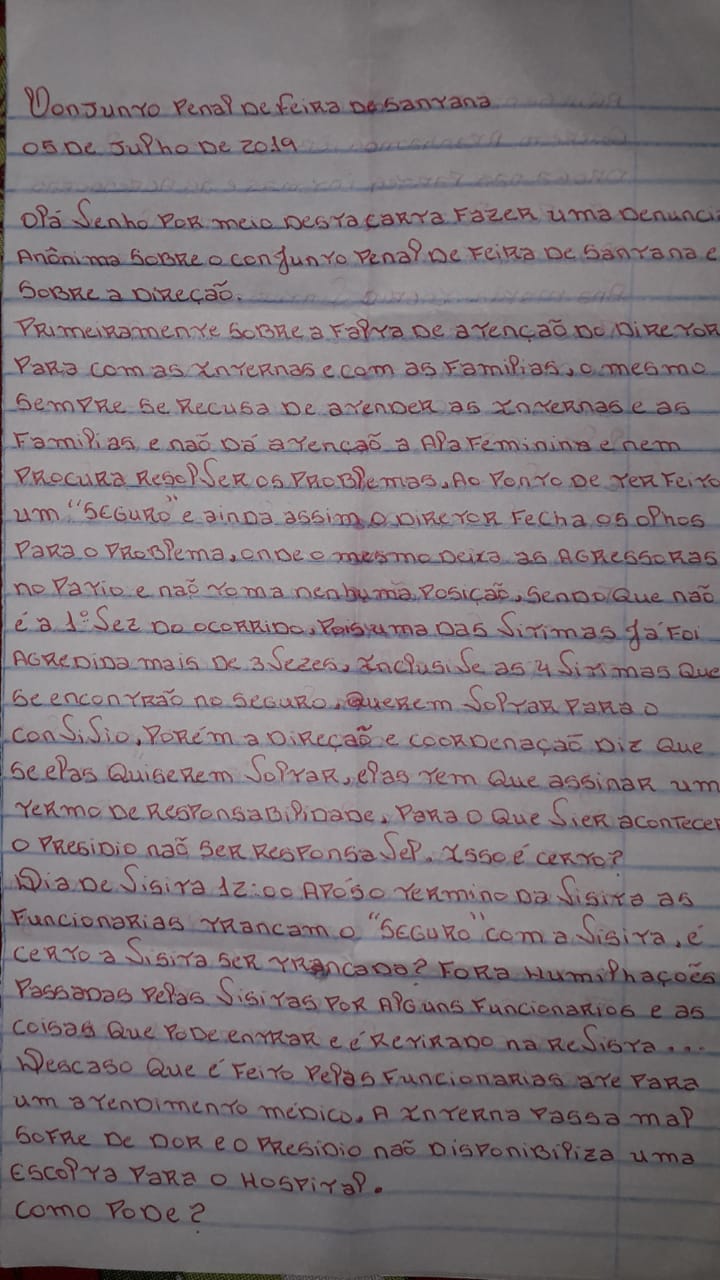 Conjunto Penal De feira De Santana
05 De Julho De 2019
Olá Senho Por meio Desta carta Fazer uma Denunci
Anônima Sobre o conjunto Penal De Feira De Santana e
Sobre a Direção.
Primeiramente Sobre a Falta De atenção Do Diretor
Para com as Internas e com as Familias, o mesmo
Sempre Se Recusa De atender as Internas e as
Familias e não Dá atenção a Ala Feminina e nem
Procura Resolver os Problemas, Ao Ponto De ter Feito
um "SEGURO" e ainda assim o Diretor Fecha os olhos
Para o Problema, onde o mesmo Deixa as AGRESSORAS
no Patio e não toma nenhuma Posição, Sendo Que não
é a 1º Vez Do ocorrido, Pois uma Das Vitimas Já Foi
AGREDIDA mais De 3 Vezes, Inclusive as 4 Vitimas Que
Se encontrão no Seguro, Querem Voltar Para o
conVivio, Porém a Direção e coordenação Diz Que
Se elas Quiserem Voltar, elas tem Que assinar um
termo De Responsabilidade, Para o Que Vier acontecer
o Presidio não Ser ResponsaVel. Isso é certo?
Dia De Visita 12:00 Após o termino Da Visita as
Funcionarias trancam o "SEGURO" com a Visita, é
certo a Visita Ser trancada? Fora Humilhações
Passadas Pelas Visitas Por Alguns Funcionarios e as
coisas Que Pode entrar e é Retirado na ReVista...
Descaso Que é Feito Pelas Funcionarias ate Para
um atendimento médico, A Interna Passa mal
Sofre De Dor e o Presidio não Disponibiliza uma
Escolta Para o Hospital.
Como Pode?